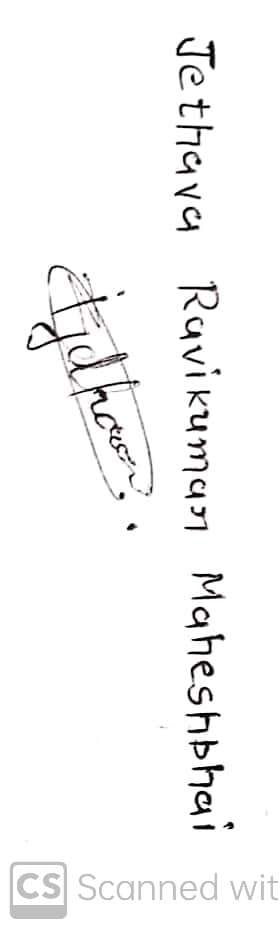 Jethava Ravikumar Maheshbhai
Jethava
CS Scanned wit